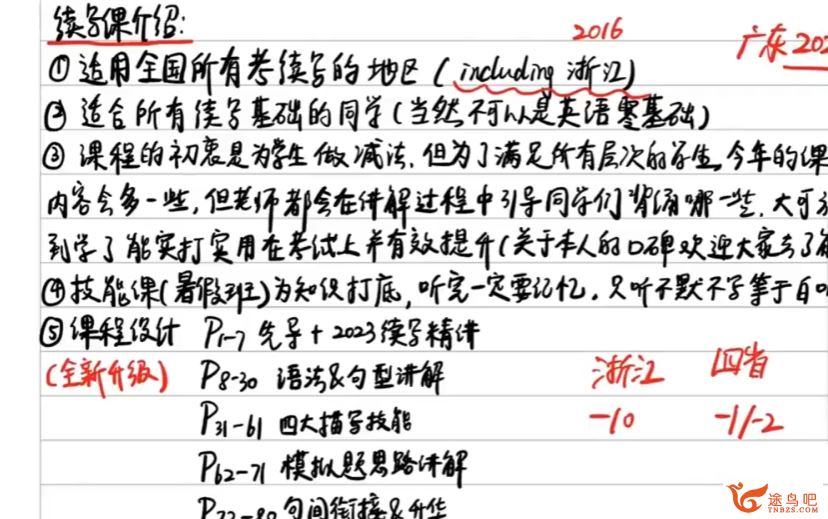 续写课介绍:
2016
广东 202
① 适用全国所有考续写的地区 (including 浙江)
② 适合所有续写基础的同学(当然不可以是英语零基础)
③ 课程的初衷是为学生做减法,但为了满足所有层次的学生,今年的课
内容会多一些,但老师都会在讲解过程中引导同学们背诵哪一些,大可
到学了能实打实用在考试上并有效提升(关于本人的口碑欢迎大家去了解
④技能课(暑假班)为知识打底,听完一定要记忆,只听不默不写等于白听
⑤课程设计 P1-7 先导+2023续写精讲
(全新升级) P8-30 语法&句型讲解
浙江 四省
P31-61 四大描写技能
-10 -1/-2
P62-71 模拟题思路讲解
P72-80 句间衔接&升华
途鸟吧
TNBZS.COM